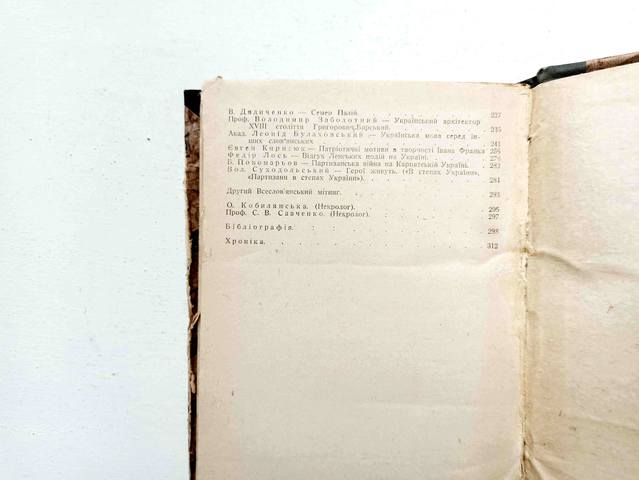 В. Дядиченко — Семен Палій. 227
Проф. Володимир Заболотний — Український архітектор
XVIII століття Григорович-Барський. 235
Акад. Леонід Булаховський — Українська мова серед ін-
ших слов'янських 241
Євген Кирилюк — Патріотичні мотиви в творчості Івана Франка 256
Федір Лось — Відгук Ленських подій на Україні.
Б. Пономарьов — Партизанська війна на Карпатській Україні. 282
Вол. Суходольський — Герої живуть. («В степах України»,
«Партизани в степах України»). 284
Другий Всеслов'янський мітинг. 293
О. Кобилянська. (Некролог). 296
Проф. С. В. Савченко. (Некролог). 297
Бібліографія. 298
Хроніка. 312